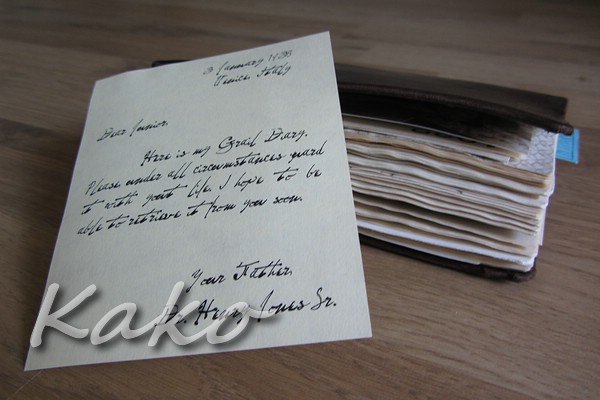 3 January 1938
Venice, Italy
Dear Junior,
Here is my Grail Diary.
Please under all circumstances guard
it with your life. I hope to be
able to retrieve it from you soon.
Your Father,
Dr. Henry Jones Sr.
Kako